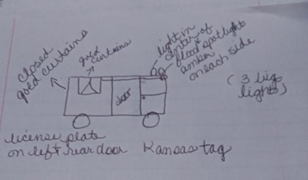 closed
gold curtains
gold
curtains
light in
center of
blood spotlights
amber
on each side
(3 big
lights)
door
license plate
on left rear door Kansas tag